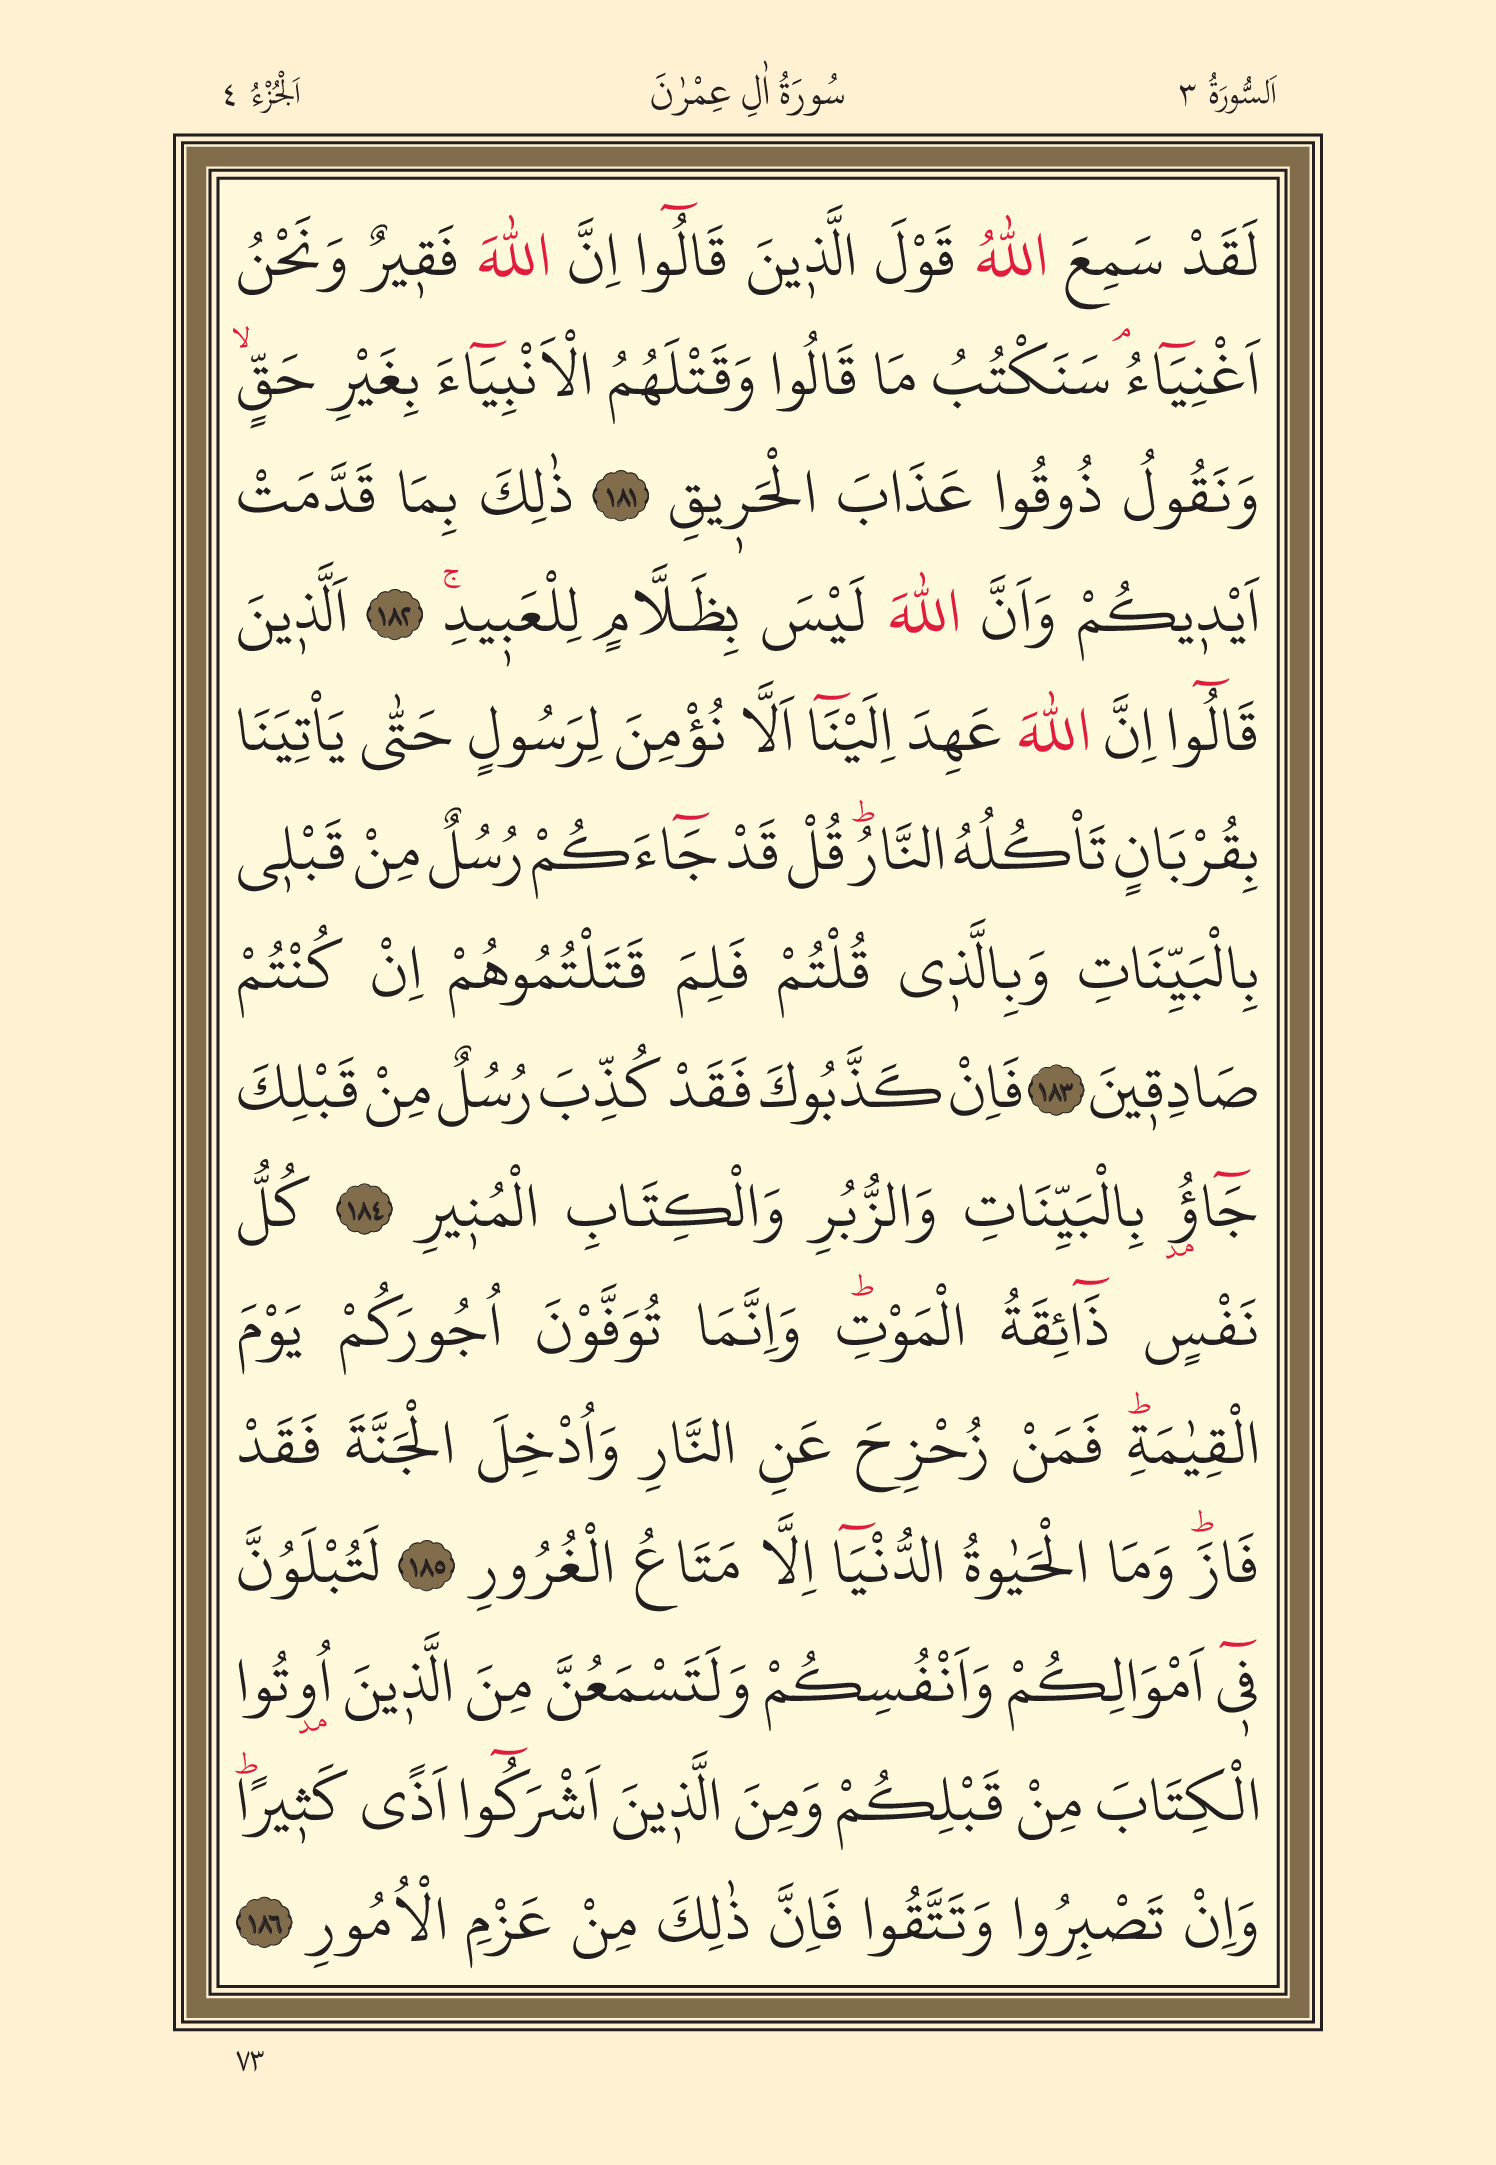 اَلسُّورَةُ ٣ سُورَةُ اٰلِ عِمْرٰنَ اَلْجُزْءُ ٤
لَقَدْ سَمِعَ اللّٰهُ قَوْلَ الَّذ۪ينَ قَالُٓوا اِنَّ اللّٰهَ فَق۪يرٌ وَنَحْنُ
اَغْنِيَٓاءُۢ سَنَكْتُبُ مَا قَالُوا وَقَتْلَهُمُ الْاَنْبِيَٓاءَ بِغَيْرِ حَقٍّۙ
وَنَقُولُ ذُوقُوا عَذَابَ الْحَر۪يقِ ﴿١٨١﴾ ذٰلِكَ بِمَا قَدَّمَتْ
اَيْد۪يكُمْ وَاَنَّ اللّٰهَ لَيْسَ بِظَلَّامٍ لِلْعَب۪يدِۚ ﴿١٨٢﴾ اَلَّذ۪ينَ
قَالُٓوا اِنَّ اللّٰهَ عَهِدَ اِلَيْنَٓا اَلَّا نُؤْمِنَ لِرَسُولٍ حَتّٰى يَاْتِيَنَا
بِقُرْبَانٍ تَاْكُلُهُ النَّارُۜ قُلْ قَدْ جَٓاءَكُمْ رُسُلٌ مِنْ قَبْل۪ى
بِالْبَيِّنَاتِ وَبِالَّذ۪ى قُلْتُمْ فَلِمَ قَتَلْتُمُوهُمْ اِنْ كُنْتُمْ
صَادِق۪ينَ ﴿١٨٣﴾ فَاِنْ كَذَّبُوكَ فَقَدْ كُذِّبَ رُسُلٌ مِنْ قَبْلِكَ
جَٓاؤُ۫ بِالْبَيِّنَاتِ وَالزُّبُرِ وَالْكِتَابِ الْمُن۪يرِ ﴿١٨٤﴾ كُلُّ
نَفْسٍ ذَٓائِقَةُ الْمَوْتِۜ وَاِنَّمَا تُوَفَّوْنَ اُجُورَكُمْ يَوْمَ
الْقِيٰمَةِۜ فَمَنْ زُحْزِحَ عَنِ النَّارِ وَاُدْخِلَ الْجَنَّةَ فَقَدْ
فَازَۜ وَمَا الْحَيٰوةُ الدُّنْيَٓا اِلَّا مَتَاعُ الْغُرُورِ ﴿١٨٥﴾ لَتُبْلَوُنَّ
ف۪ٓى اَمْوَالِكُمْ وَاَنْفُسِكُمْ وَلَتَسْمَعُنَّ مِنَ الَّذ۪ينَ اُو۫تُوا
الْكِتَابَ مِنْ قَبْلِكُمْ وَمِنَ الَّذ۪ينَ اَشْرَكُٓوا اَذًى كَث۪يرًاۜ
وَاِنْ تَصْبِرُوا وَتَتَّقُوا فَاِنَّ ذٰلِكَ مِنْ عَزْمِ الْاُمُورِ ﴿١٨٦﴾
٧٣